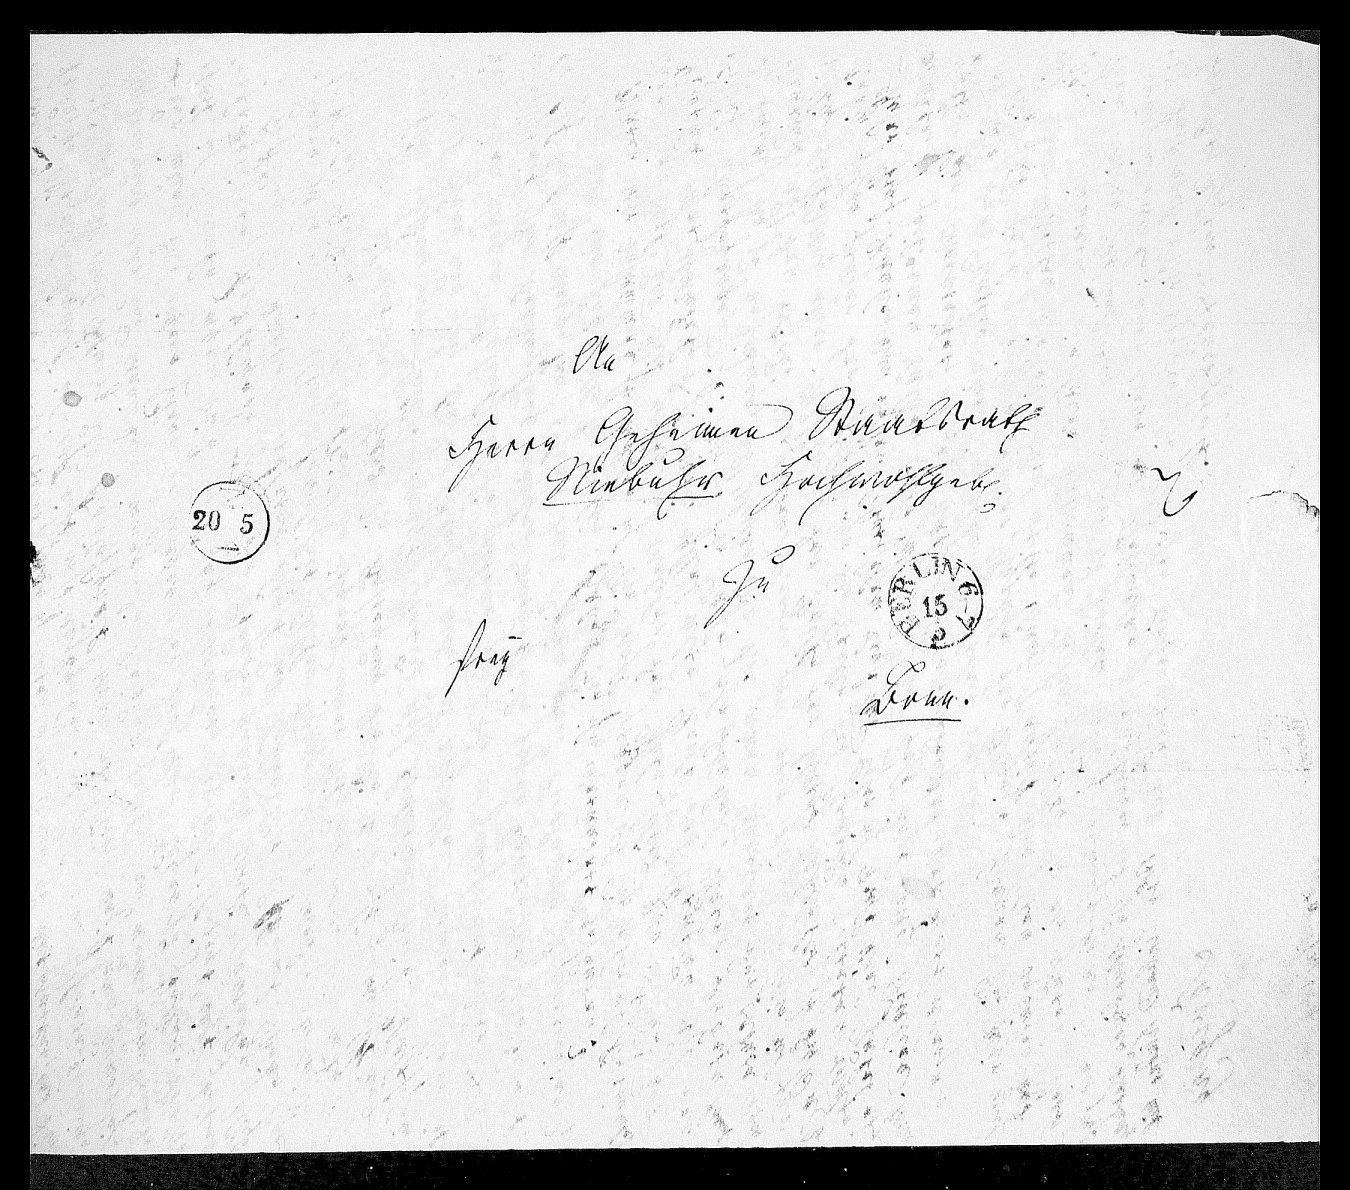 An
Herrn Geheimen Staatsrath
Niebuhr Hochwohlgeb.
20 5
zu
BERLIN 6-7
15
5
frey
Bonn.